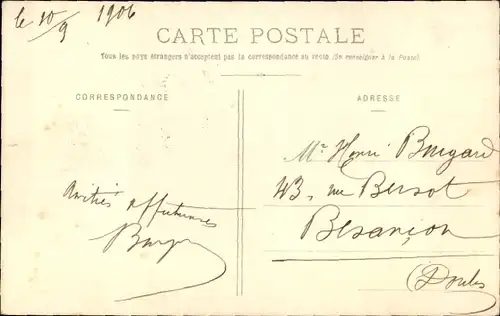 le 10/9 1906
CARTE POSTALE
Tous les pays étrangers n'acceptent pas la correspondance au recto (Se renseigner à la Poste)
CORRESPONDANCE
ADRESSE
Mr Henri
43, rue Bersot
Besançon
(Doubs)
Amitiés affectueuses